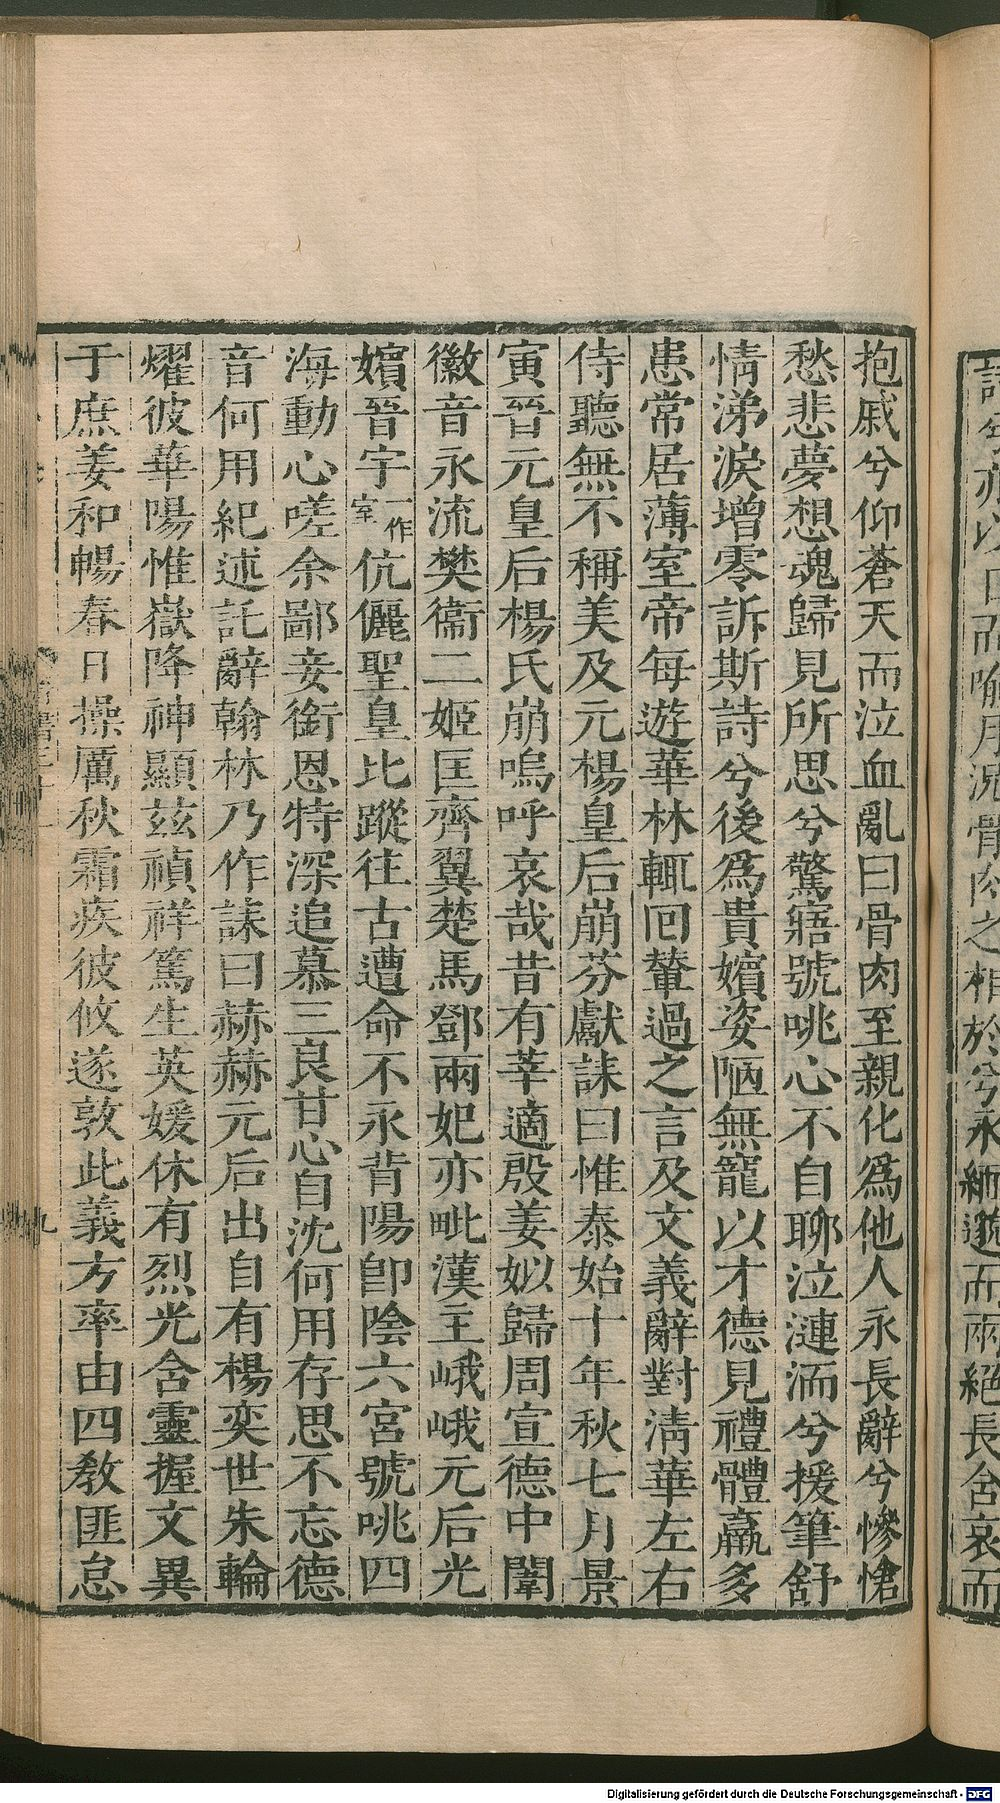 抱戚兮仰蒼天而泣血亂曰骨肉至親化爲他人永長辭兮慘愴
愁悲夢想魂歸見所思兮驚寤號咷心不自聊泣漣洏兮援筆舒
情涕淚增零訴斯詩兮後爲貴嬪姿陋無寵以才德見禮體羸多
患常居薄室帝每遊華林輒回輦過之言及文義辭對清華左右
侍聽無不稱美及元楊皇后崩芬獻誄曰惟泰始十年秋七月景
寅晉元皇后楊氏崩嗚呼哀哉昔有莘適殷姜姒歸周宣德中闈
徽音永流樊衞二姬匡齊翼楚馬鄧兩妃亦毗漢主峨峨元后光
嬪晉宇一作室伉儷聖皇比蹤往古遭命不永背陽卽陰六宮號咷四
海動心嗟余鄙妾銜恩特深追慕三良甘心自沈何用存思不忘德
音何用紀述託辭翰林乃作誄曰赫赫元后出自有楊奕世朱輪
燿彼華陽惟嶽降神顯茲禎祥篤生英媛休有烈光含靈握文異
于庶姜和暢春日操厲秋霜疾彼攸遂敦此義方率由四敎匪怠
九
以日而喻月況骨肉之相於兮永緬邈而兩絕長含哀而
Digitalisierung gefördert durch die Deutsche Forschungsgemeinschaft - DFG